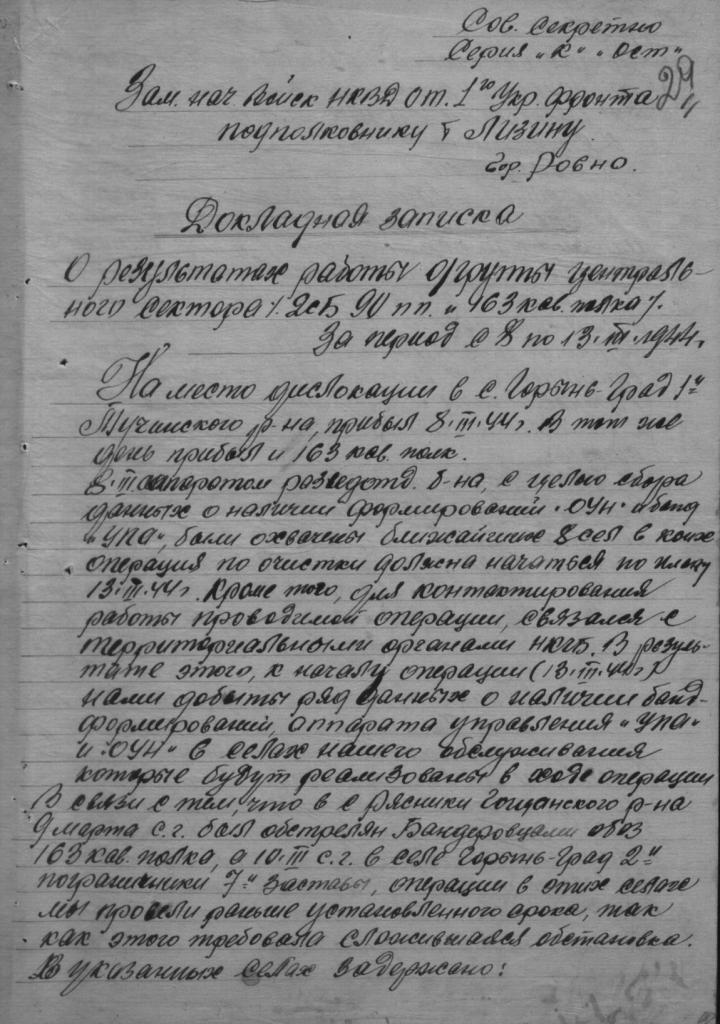 Сов. Секретно
Серия „К" „Ост"
29
Зам. нач. Войск НКВД от. 1го Укр. фронта
подполковнику т Лизину.
гор. Ровно.
Докладная записка
О результатах работы о/группы централь-
ного сектора /. 2сБ 90 пп. и 163 кав. полка /.
За период с 8 по 13. III. 1944 г.
На место дислокации в с. Горынь-Град 1й
Тучинского р-на, прибыл 8. III. 44 г. В тот же
день прибыл и 163 кав. полк.
8. III. аппаратом разведотд. б-на, с целью сбора
данных о наличии формирований „ОУН" и банд
„УПА", были охвачены ближайшие 8 сел в коих
операция по очистки должна начаться по плану
13. III. 44 г. Кроме того, для контактирования
работы проводимой операции, связался с
территориальными органами НКГБ. В резуль-
тате этого, к началу операции (13. III. 44 г.)
нами добыты ряд данных о наличии банд-
формирований, аппарата управления „УПА"
и „ОУН" в селах нашего обслуживания
которые будут реализованы в ходе операции
В связи с тем, что в с Рясники Гощанского р-на
9 марта с. г. был обстрелян Бандеровцами обоз
163 кав. полка, а 10. III с. г. в селе Горынь-Град 2й
пограничники 7й заставы, операции в этих селах
мы провели раньше установленного срока, так
как этого требовала сложившаяся обстановка.
В указанных селах задержано: